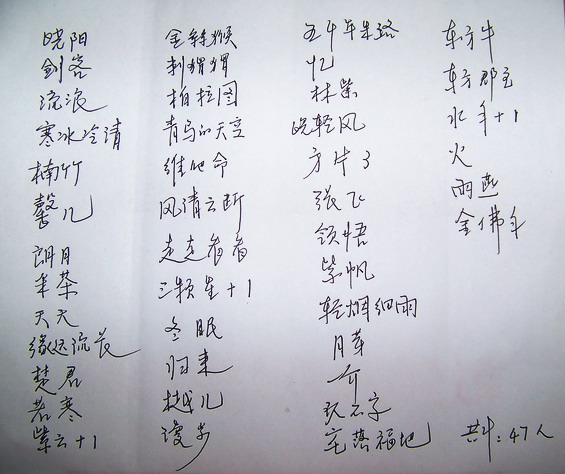 晓阳
剑客
流浪
寒冰冷清
楠竹
馨儿
朗月
羊茶
天天
缘远流长
楚君
若寒
紫云+1
金丝猴
刺猬猬
柏拉图
青鸟的天空
维他命
风清云断
走走看看
三颗星+1
冬眠
归来
越儿
漫步
五千年来路
忆
林紫
晓轻风
方片3
张飞
领悟
紫帆
轻烟细雨
月芽
玖不字
室落福地
东方牛
东方郡主
水手+1
火
雨燕
金佛手
共计:47人